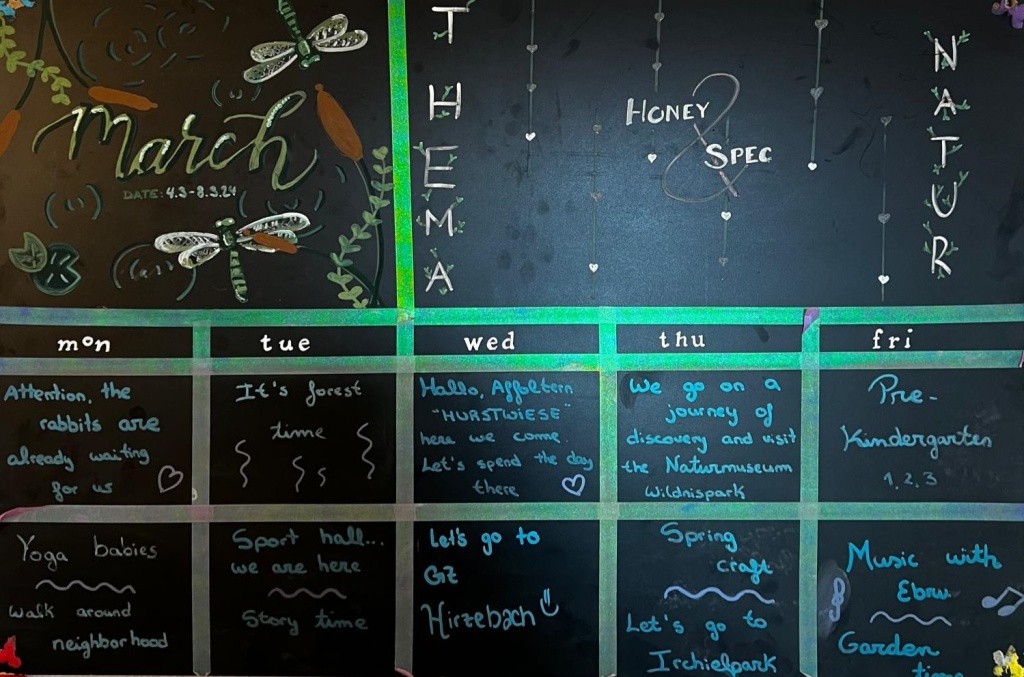 March
DATE: 4.3-8.3.24
THEMA
HONEY
&
SPEC
NATUR
mon
tue
wed
thu
fri
Attention, the
rabbits are
already waiting
for us
It's forest
time
Hallo, Affoltern
"HURSTWIESE"
here we come.
Let's spend the day
there
We go on a
journey of
discovery and visit
the Naturmuseum
Wildnispark
Pre-
Kindergarten
1, 2, 3
Yoga babies
walk around
neighborhood
Sport hall...
we are here
Story time
Let's go to
GZ
Hirzebach
Spring
craft
Let's go to
Irchielpark
Music with
Ebru
Garden
time